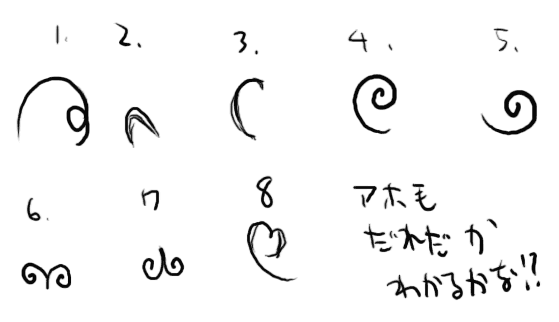 1. 2. 3. 4. 5.
6. 7 8
アホ毛
だれだか
わかるかな!?